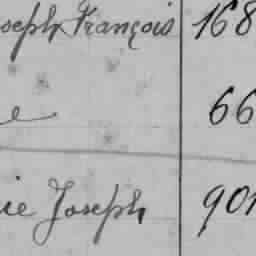 oseph François 168
e 66
ie Joseph 901